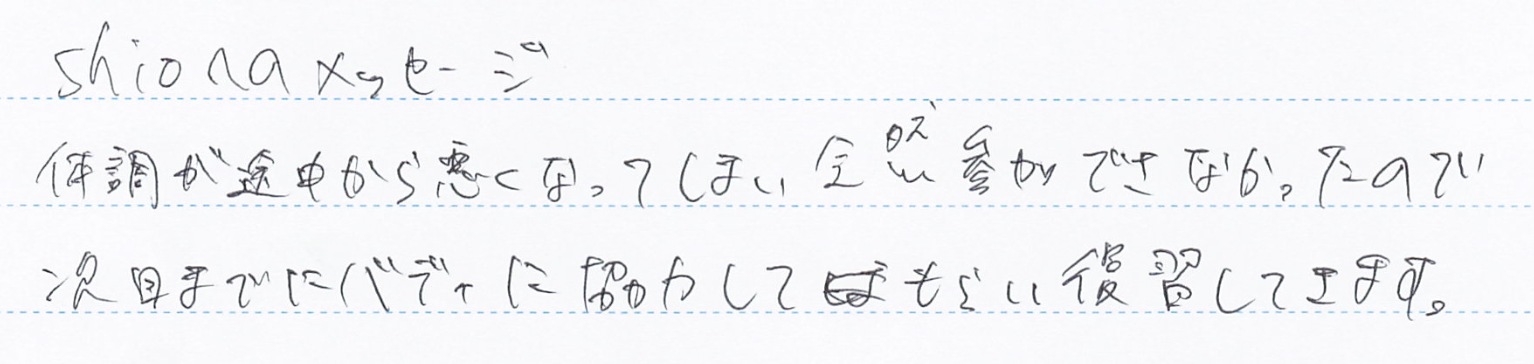 shioのメッセージ
体調が途中から悪くなってしまい全然参加できなかったので
次回までにバディに協力してもらい復習してきます。